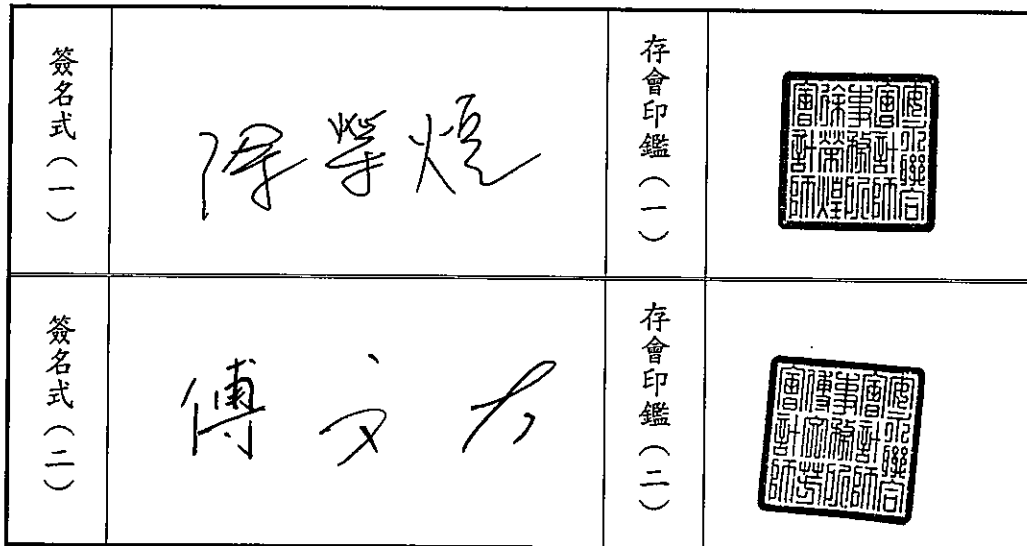 簽名式（一）
徐榮煌
存會印鑑（一）
安永聯合
會計師
事務所
徐榮煌
會計師
簽名式（二）
傅文芳
存會印鑑（二）
安永聯合
會計師
事務所
傅文芳
會計師